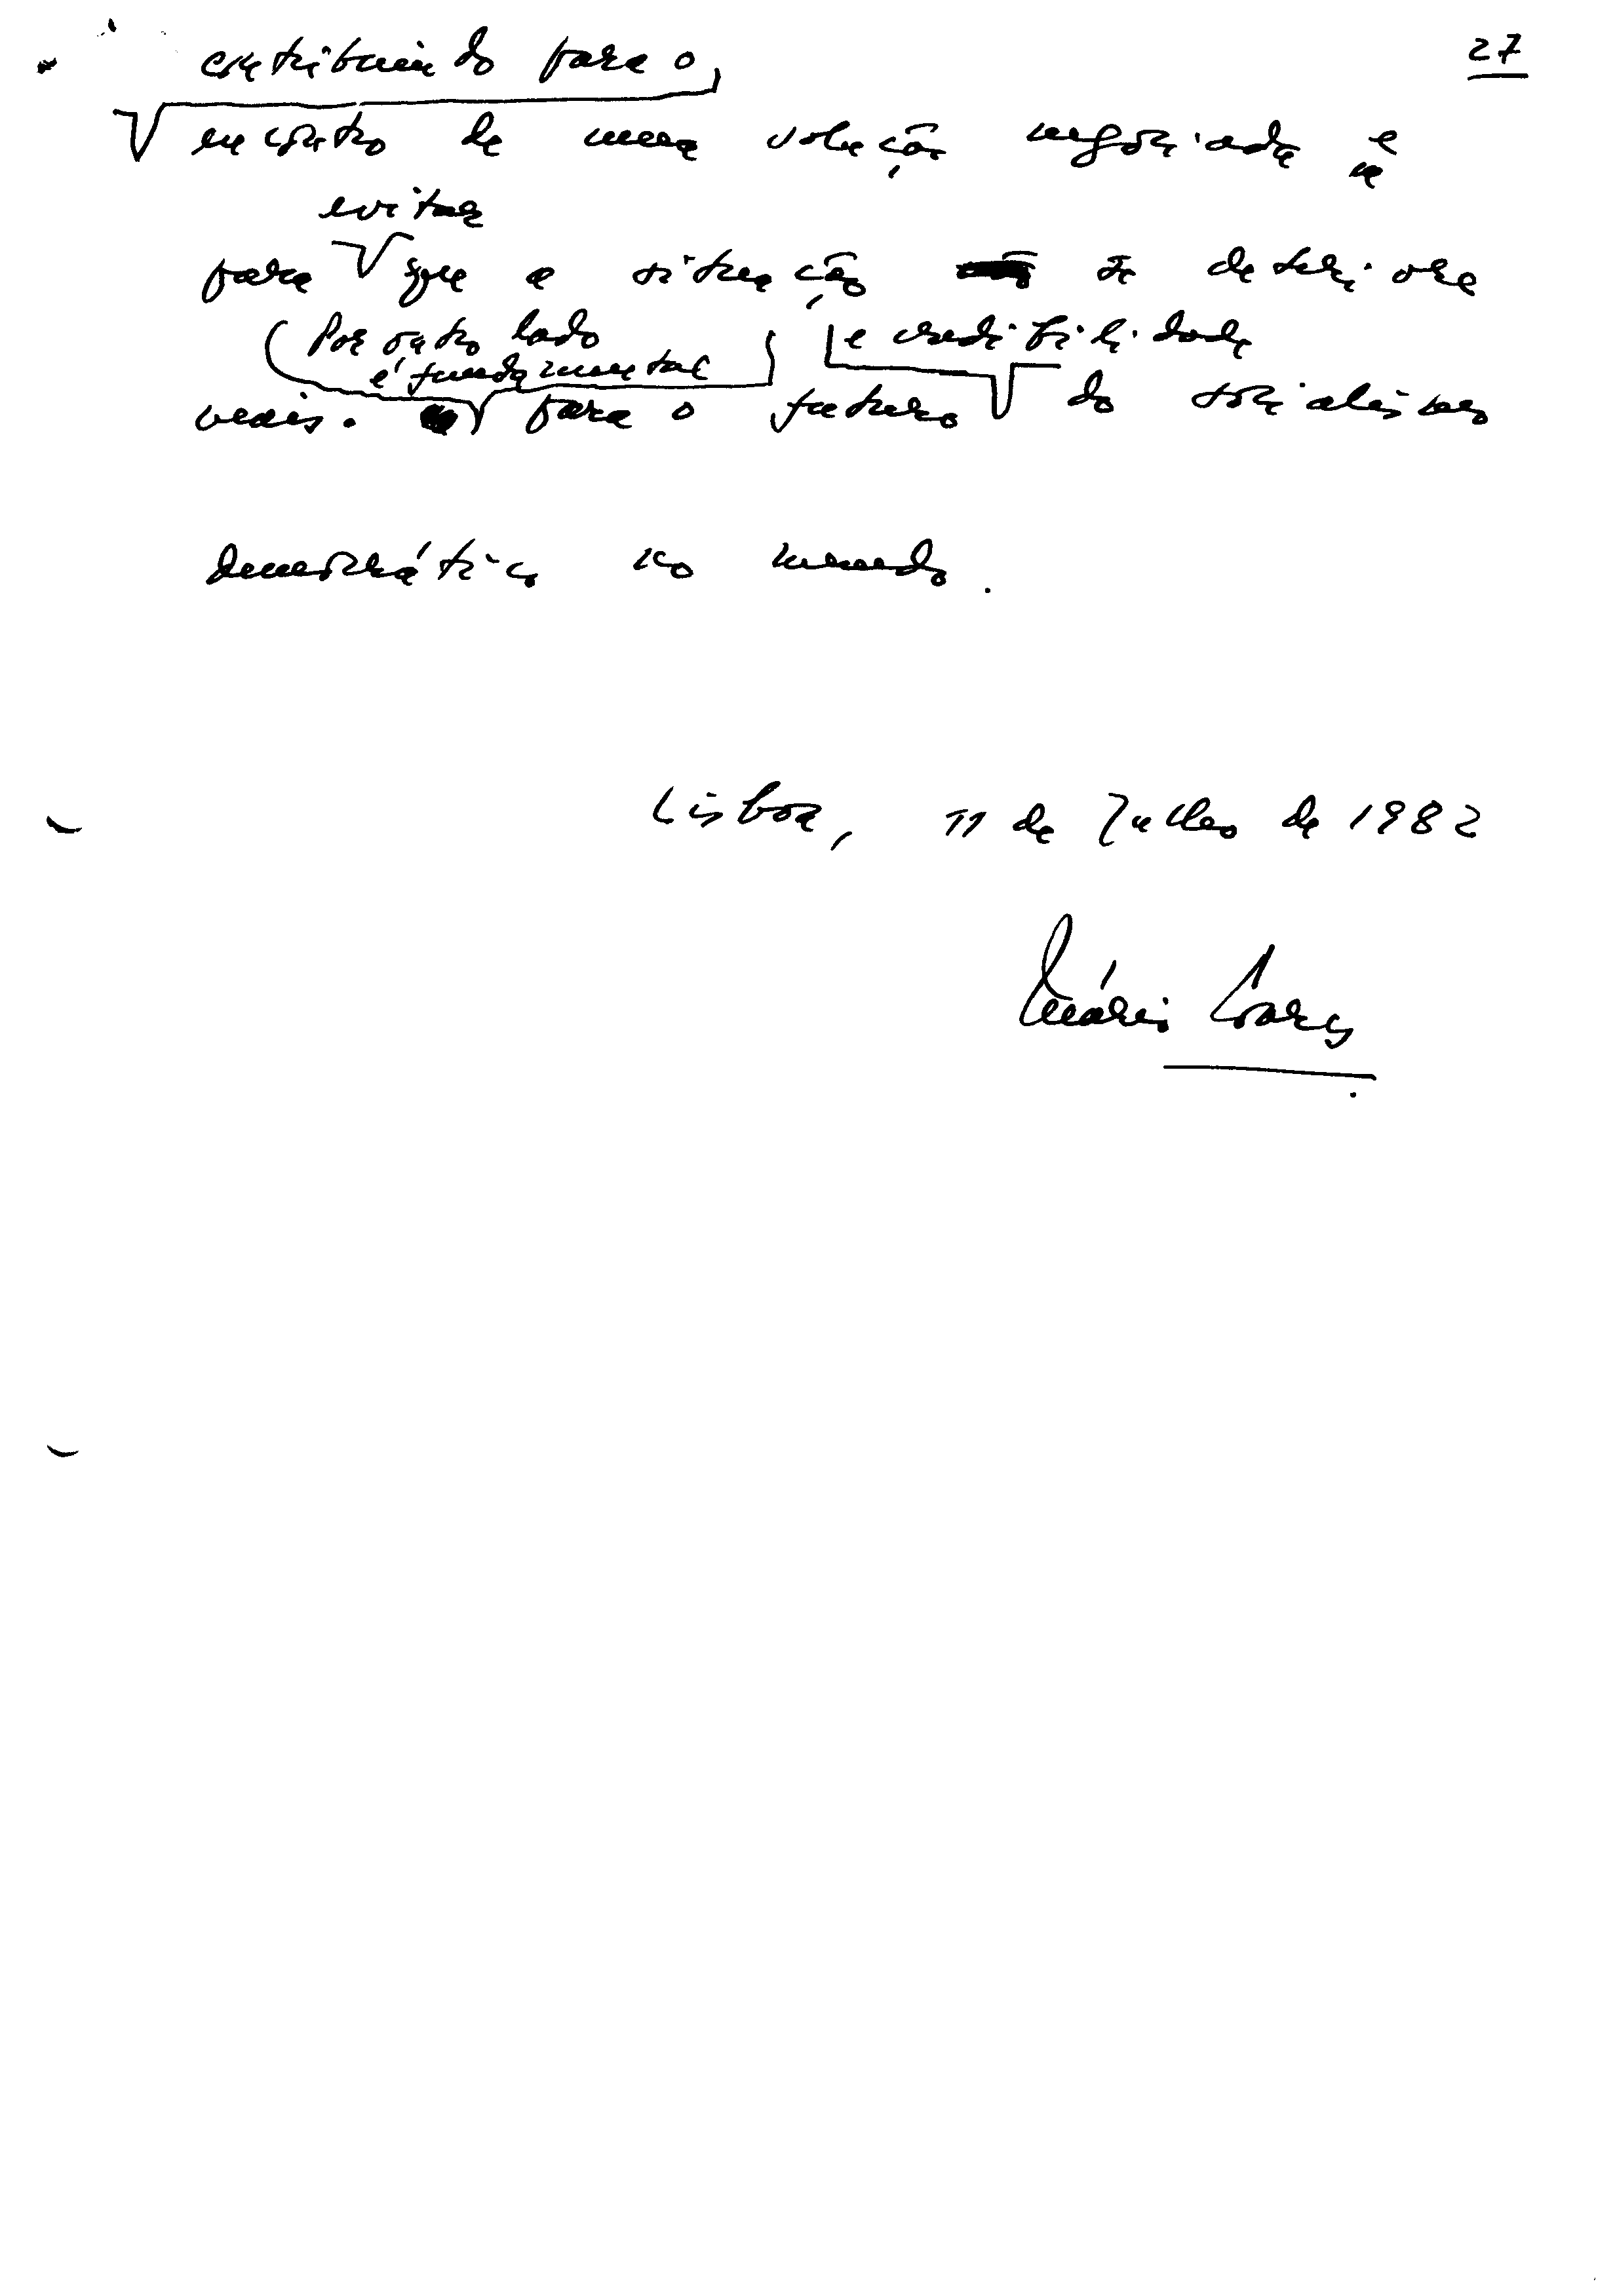 27
contribuindo para o
encontro de uma solução negociada e
evitar
para que a situação se deteriore
Por outro lado
é fundamental
e credibilidade
mais. para o futuro do socialismo
democrático no mundo.
Lisboa, 11 de Julho de 1982
Mário Soares